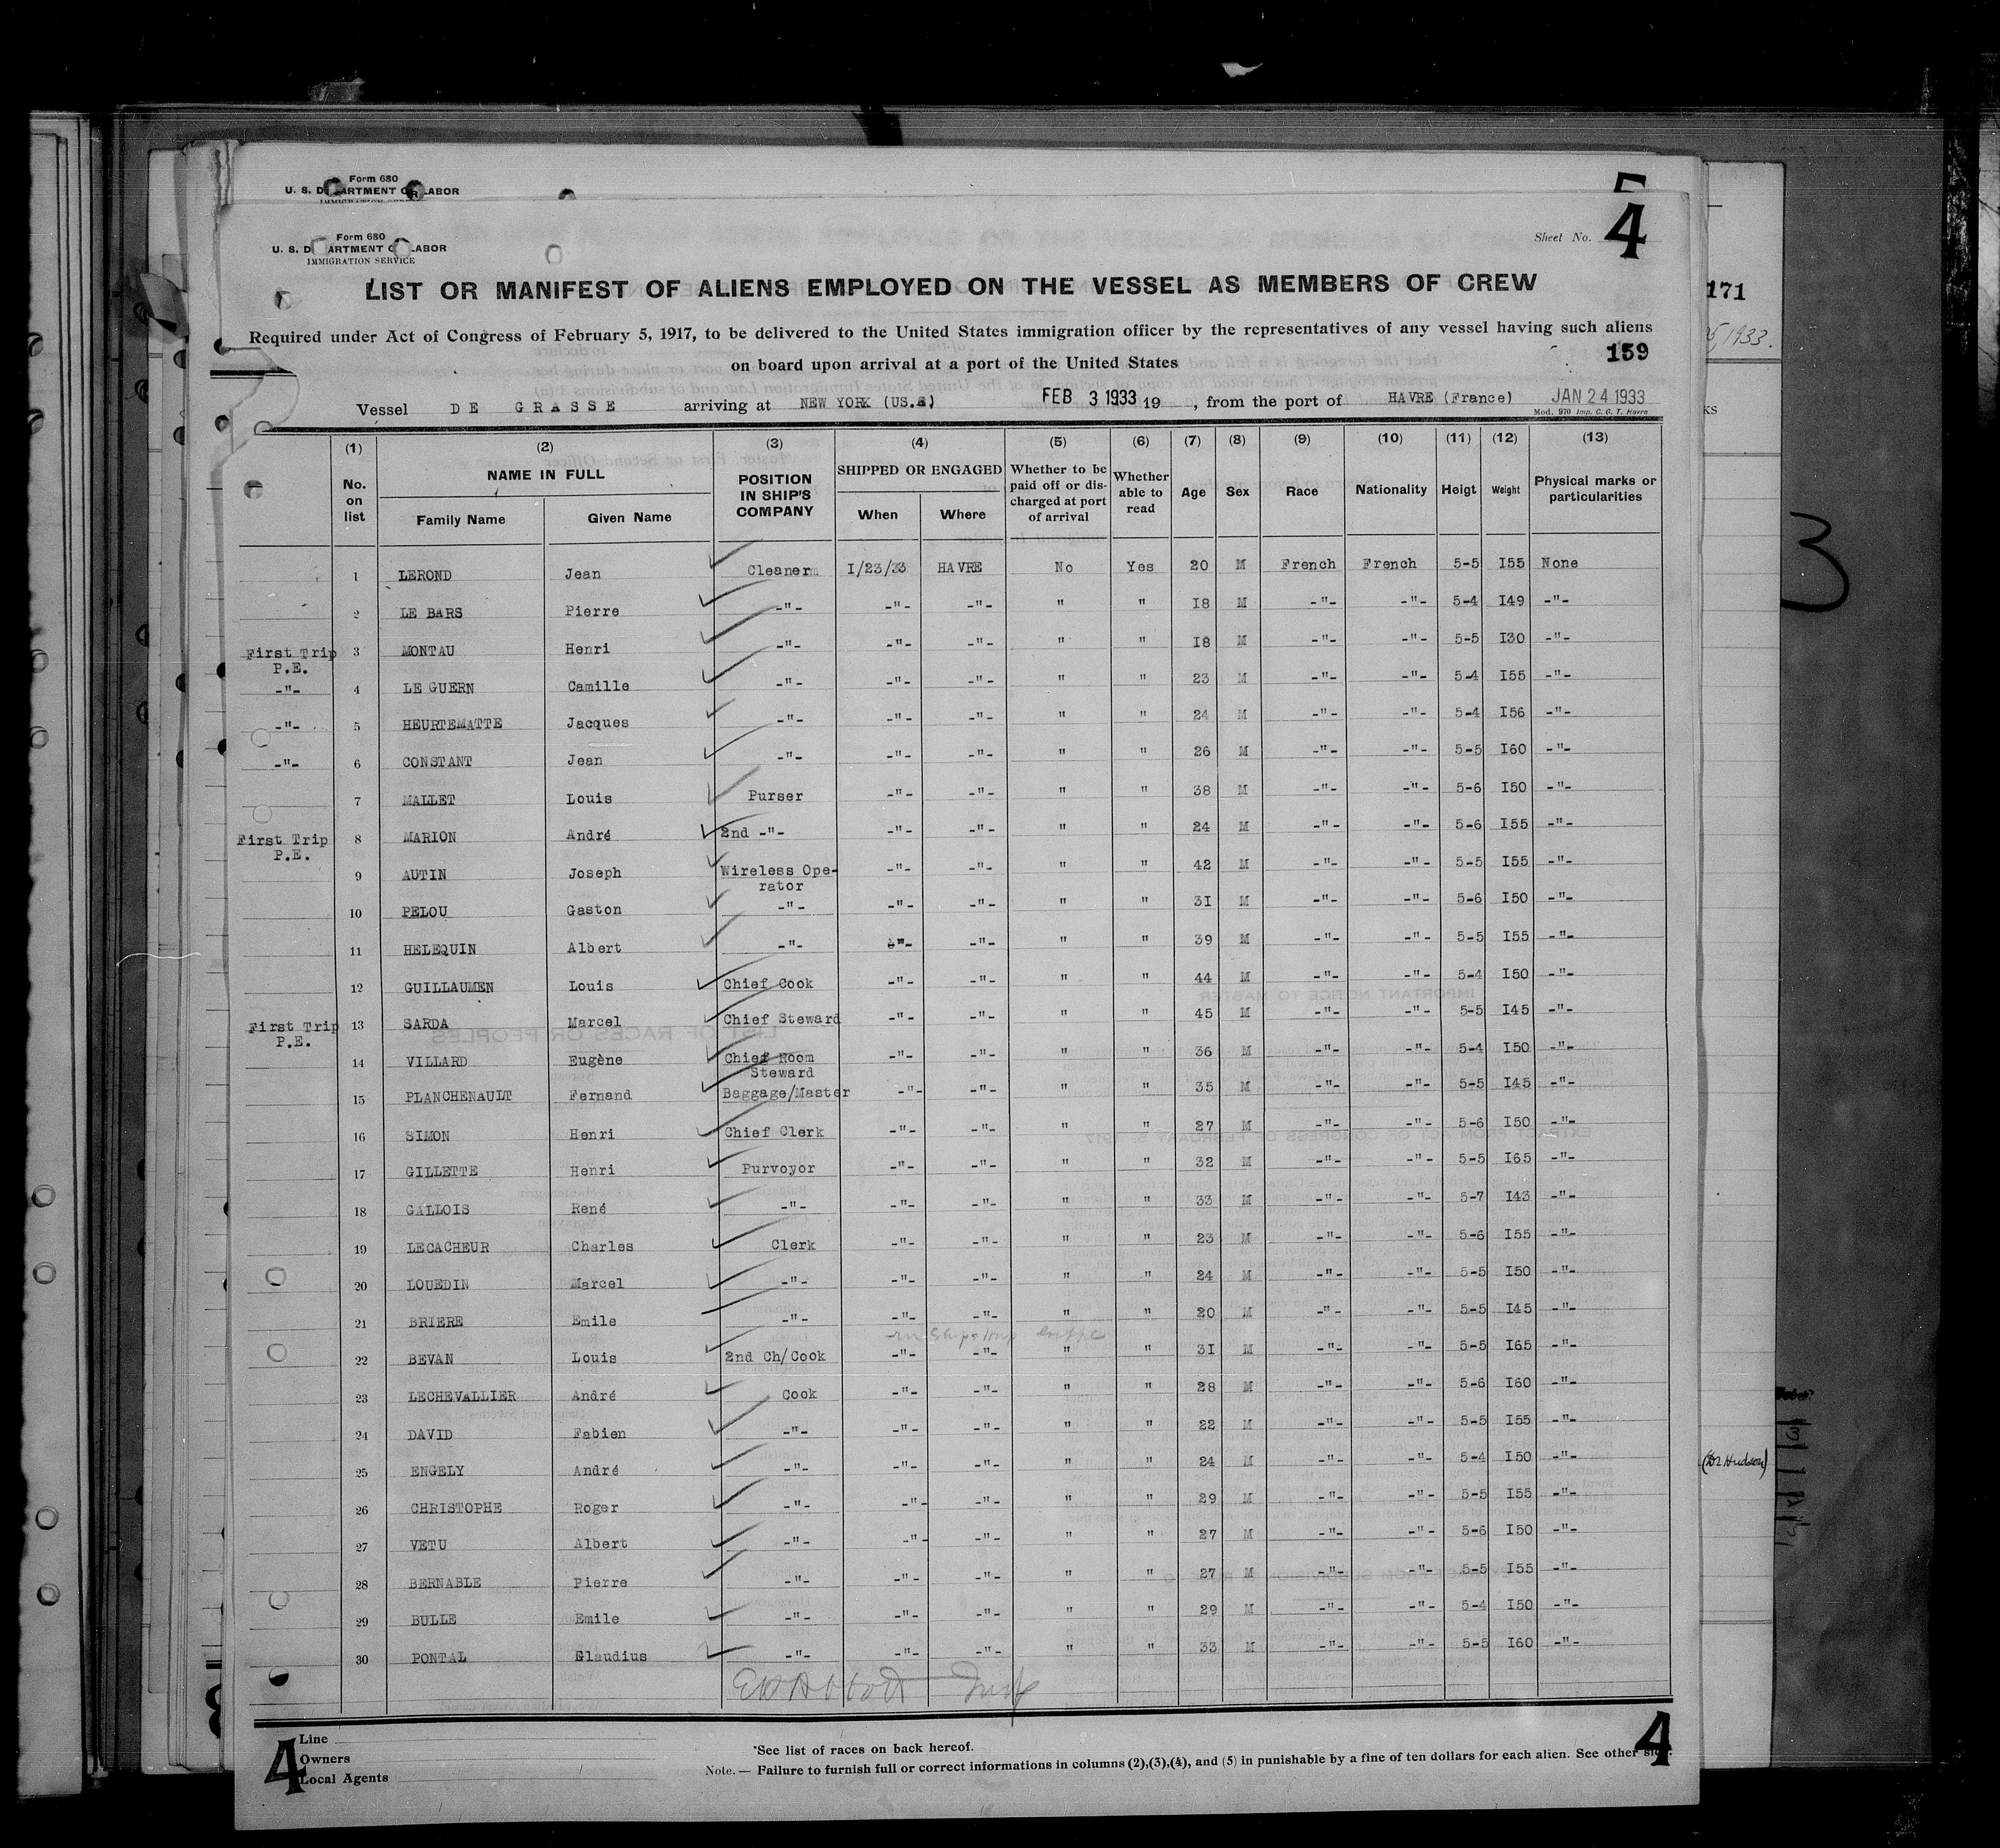 Form 680
U. S. DEPARTMENT OF LABOR
5
Form 680
U. S. DEPARTMENT OF LABOR
IMMIGRATION SERVICE
Sheet No. 4
LIST OR MANIFEST OF ALIENS EMPLOYED ON THE VESSEL AS MEMBERS OF CREW
171
Required under Act of Congress of February 5, 1917, to be delivered to the United States immigration officer by the representatives of any vessel having such aliens
on board upon arrival at a port of the United States
159
Vessel DE GRASSE arriving at NEW YORK (US.A) FEB 3 1933 19 , from the port of HAVRE (France) JAN 24 1933
Mod. 970 Imp. C. G. T. Havre
(1) (2) (3) (4) (5) (6) (7) (8) (9) (10) (11) (12) (13)
No. on list NAME IN FULL Family Name Given Name POSITION IN SHIP'S COMPANY SHIPPED OR ENGAGED When Where Whether to be paid off or discharged at port of arrival Whether able to read Age Sex Race Nationality Heigt Weight Physical marks or particularities
1 LEROND Jean Cleaner I/23/33 HAVRE No Yes 20 M French French 5-5 I55 None
2 LE BARS Pierre -"- -"- -"- " " I8 M -"- -"- 5-4 I49 -"-
First Trip P.E. 3 MONTAU Henri -"- -"- -"- " " I8 M -"- -"- 5-5 I30 -"-
-"- 4 LE GUERN Camille -"- -"- -"- " " 23 M -"- -"- 5-4 I55 -"-
-"- 5 HEURTEMATTE Jacques -"- -"- -"- " " 24 M -"- -"- 5-4 I56 -"-
-"- 6 CONSTANT Jean -"- -"- -"- " " 26 M -"- -"- 5-5 I60 -"-
7 MALLET Louis Purser -"- -"- " " 38 M -"- -"- 5-6 I50 -"-
First Trip P.E. 8 MARION André 2nd -"- -"- -"- " " 24 M -"- -"- 5-6 I55 -"-
9 AUTIN Joseph Wireless Operator -"- -"- " " 42 M -"- -"- 5-5 I55 -"-
10 PELOU Gaston -"- -"- -"- " " 3I M -"- -"- 5-6 I50 -"-
11 HELEQUIN Albert -"- -"- -"- " " 39 M -"- -"- 5-5 I55 -"-
12 GUILLAUMEN Louis Chief Cook -"- -"- " " 44 M -"- -"- 5-4 I50 -"-
First Trip P.E. 13 SARDA Marcel Chief Steward -"- -"- " " 45 M -"- -"- 5-5 I45 -"-
14 VILLARD Eugène Chief Room Steward -"- -"- " " 36 M -"- -"- 5-4 I50 -"-
15 PLANCHENAULT Fernand Baggage/Master -"- -"- " " 35 M -"- -"- 5-5 I45 -"-
16 SIMON Henri Chief Clerk -"- -"- " " 27 M -"- -"- 5-6 I50 -"-
17 GILLETTE Henri Purvoyor -"- -"- " " 32 M -"- -"- 5-5 I65 -"-
18 GALLOIS René -"- -"- -"- " " 33 M -"- -"- 5-7 I43 -"-
19 LECACHEUR Charles Clerk -"- -"- " " 23 M -"- -"- 5-6 I55 -"-
20 LOUEDIN Marcel -"- -"- -"- " " 24 M -"- -"- 5-5 I50 -"-
21 BRIERE Emile -"- -"- -"- " " 20 M -"- -"- 5-5 I45 -"-
22 BEVAN Louis 2nd Ch/Cook -"- -"- " " 3I M -"- -"- 5-5 I65 -"-
23 LECHEVALLIER André Cook -"- -"- " " 28 M -"- -"- 5-6 I60 -"-
24 DAVID Fabien -"- -"- -"- " " 22 M -"- -"- 5-5 I55 -"-
25 ENGELY André -"- -"- -"- " " 24 M -"- -"- 5-4 I50 -"-
26 CHRISTOPHE Roger -"- -"- -"- " " 29 M -"- -"- 5-5 I55 -"-
27 VETU Albert -"- -"- -"- " " 27 M -"- -"- 5-6 I50 -"-
28 BERNABLE Pierre -"- -"- -"- " " 27 M -"- -"- 5-5 I55 -"-
29 BULLE Emile -"- -"- -"- " " 29 M -"- -"- 5-4 I50 -"-
30 PONTAL Glaudius -"- -"- -"- " " 33 M -"- -"- 5-5 I60 -"-
3
(Dr Hudson)
4 Line
Owners
Local Agents
*See list of races on back hereof.
Note.— Failure to furnish full or correct informations in columns (2),(3),(4), and (5) in punishable by a fine of ten dollars for each alien. See other side.
4